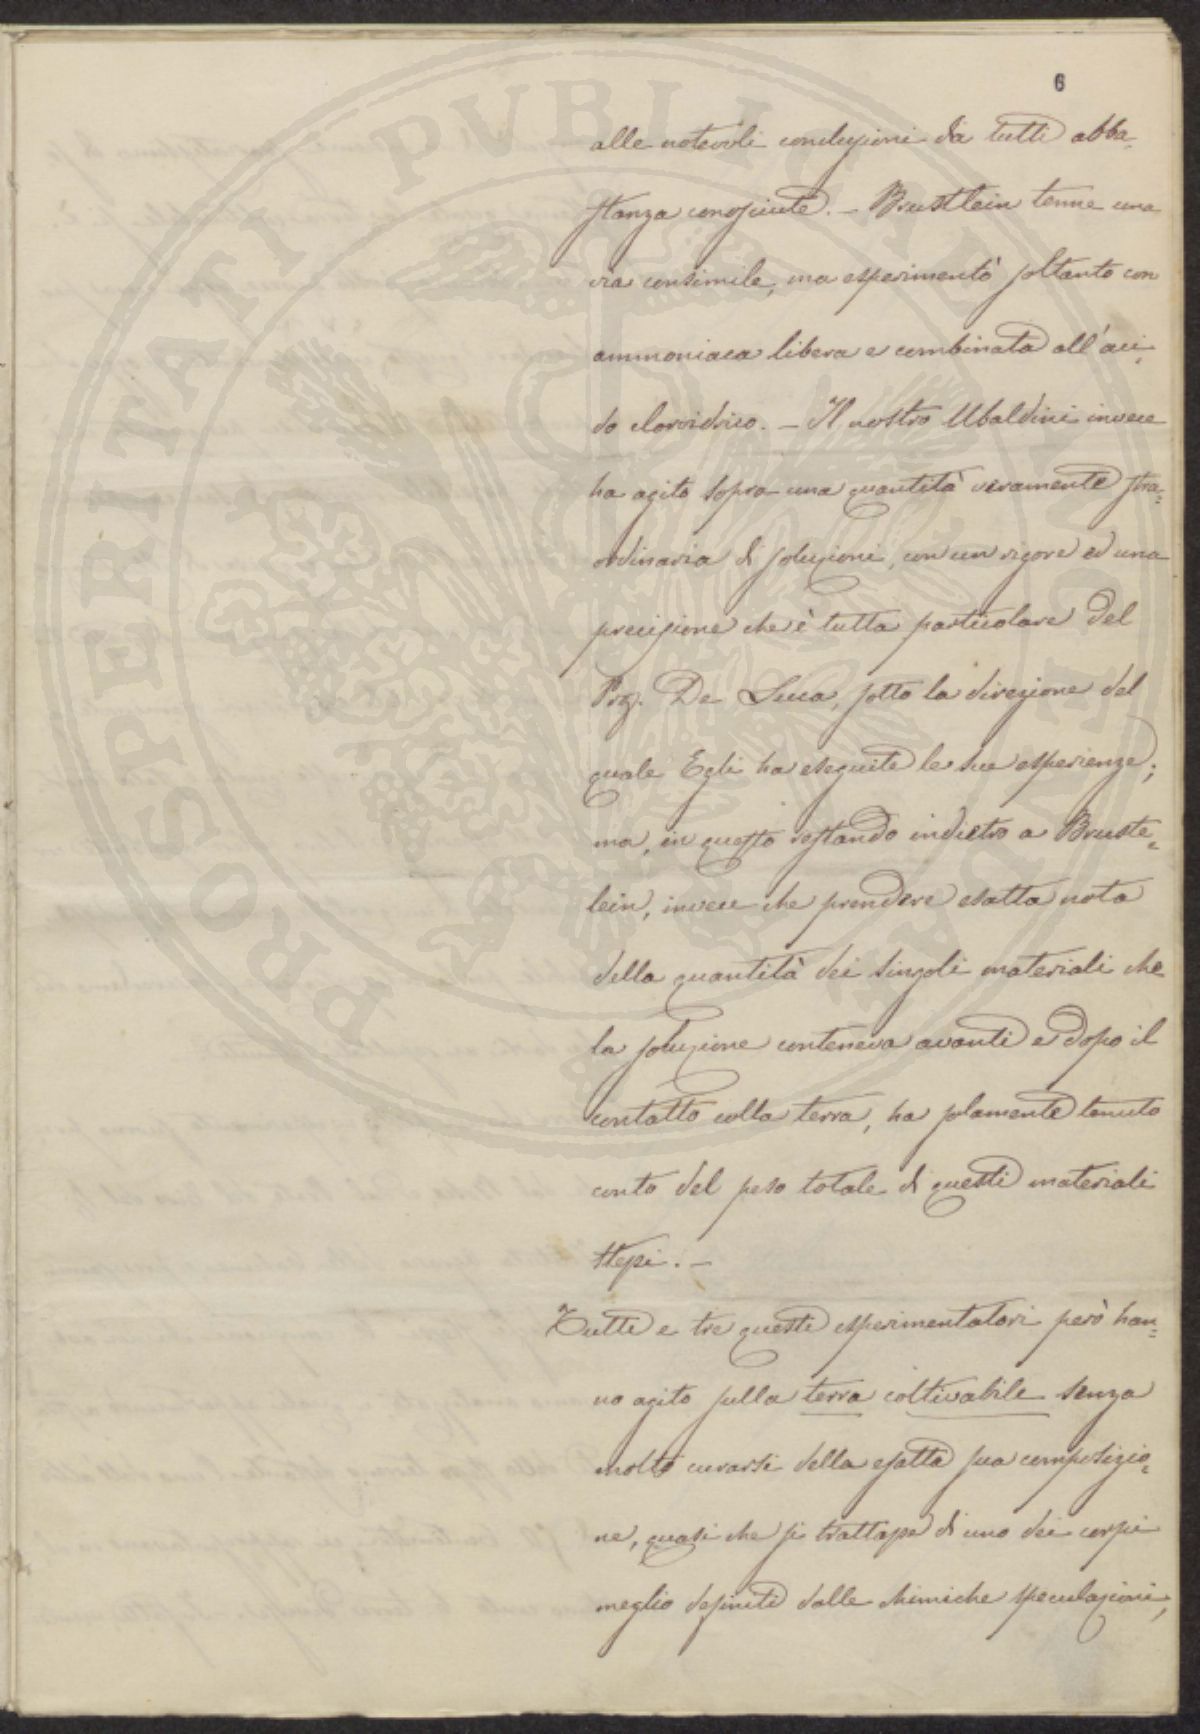 6
alle notevoli conclusioni da tutti abba-
stanza conosciute. - Brustlein tenne una
via consimile, ma esperimentò soltanto con
ammoniaca libera e combinata all'aci-
do cloroidrico. - Il nostro Ubaldini invece
ha agito sopra una quantità veramente stra-
ordinaria di soluzioni, con un rigore ed una
precisione che è tutta particolare del
Prof. De Luca, sotto la direzione del
quale Egli ha eseguite le sue esperienze;
ma, in questo restando indietro a Bruste-
lein, invece che prendere esatta nota
della quantità dei singoli materiali che
la soluzione conteneva avanti e dopo il
contatto colla terra, ha solamente tenuto
conto del peso totale di questi materiali
stessi. -
Tutti e tre questi esperimentatori però han-
no agito sulla terra coltivabile senza
molto curarsi della esatta sua composizio-
ne, quasi che si trattasse di uno dei corpi
meglio definiti dalle chimiche speculazioni,
PROSPERITATI PVBLICAE AVGENDAE